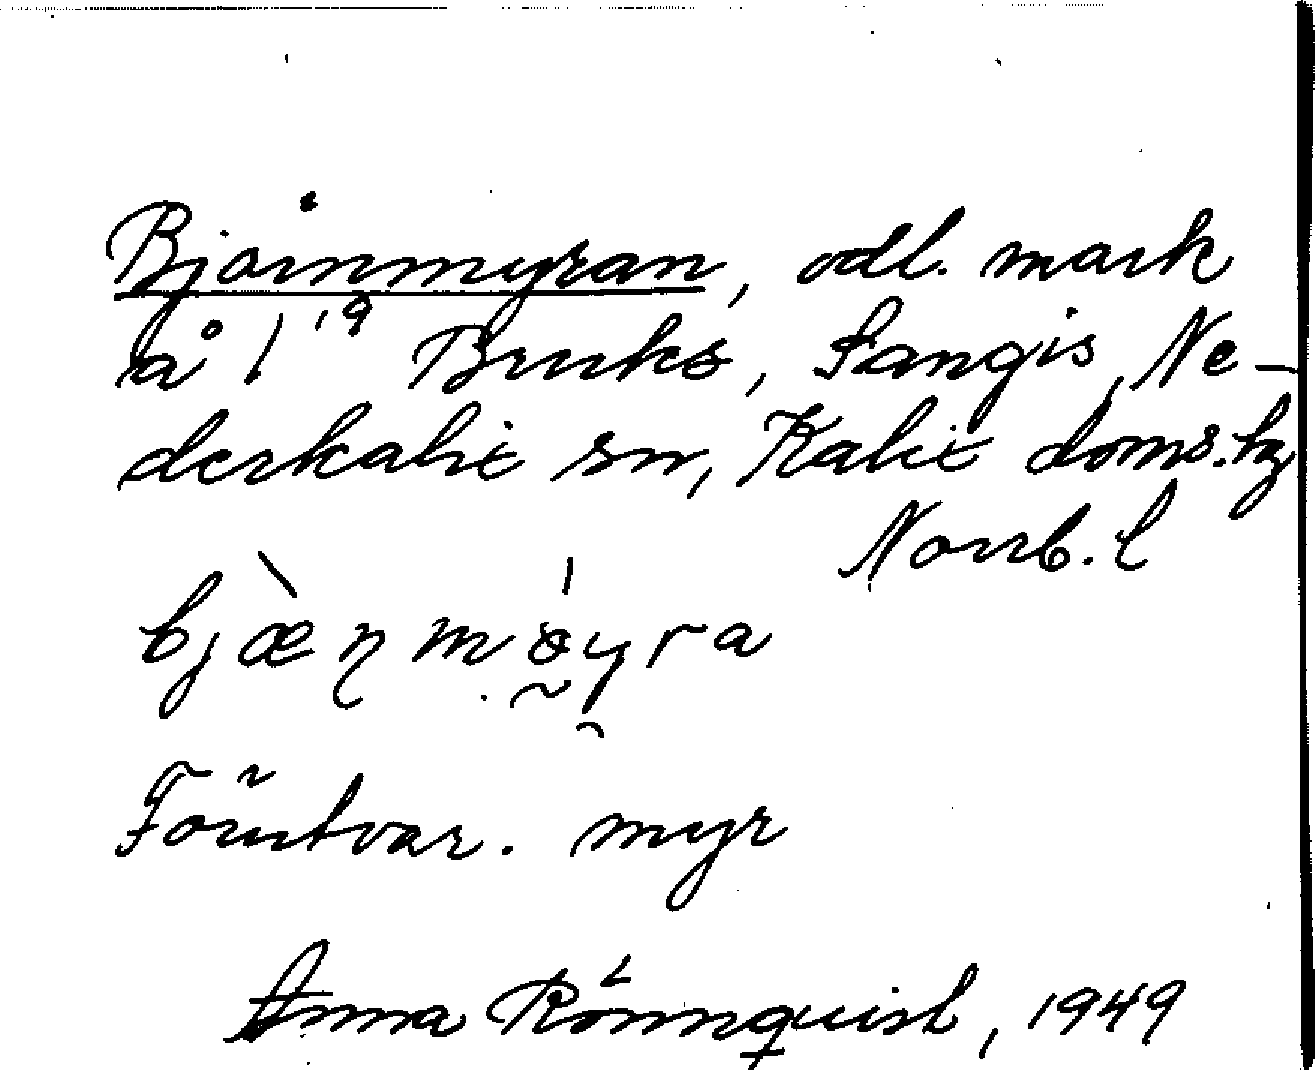 Björnmyran, odl. mark
å 1¹⁹ Bruks, Sangis, Ne-
derkalix sn, Kalix doms. hg
Norrb. l
bjæ̀ṇmø̀yra
Förutvar. myr
Anna Rönnquist, 1949